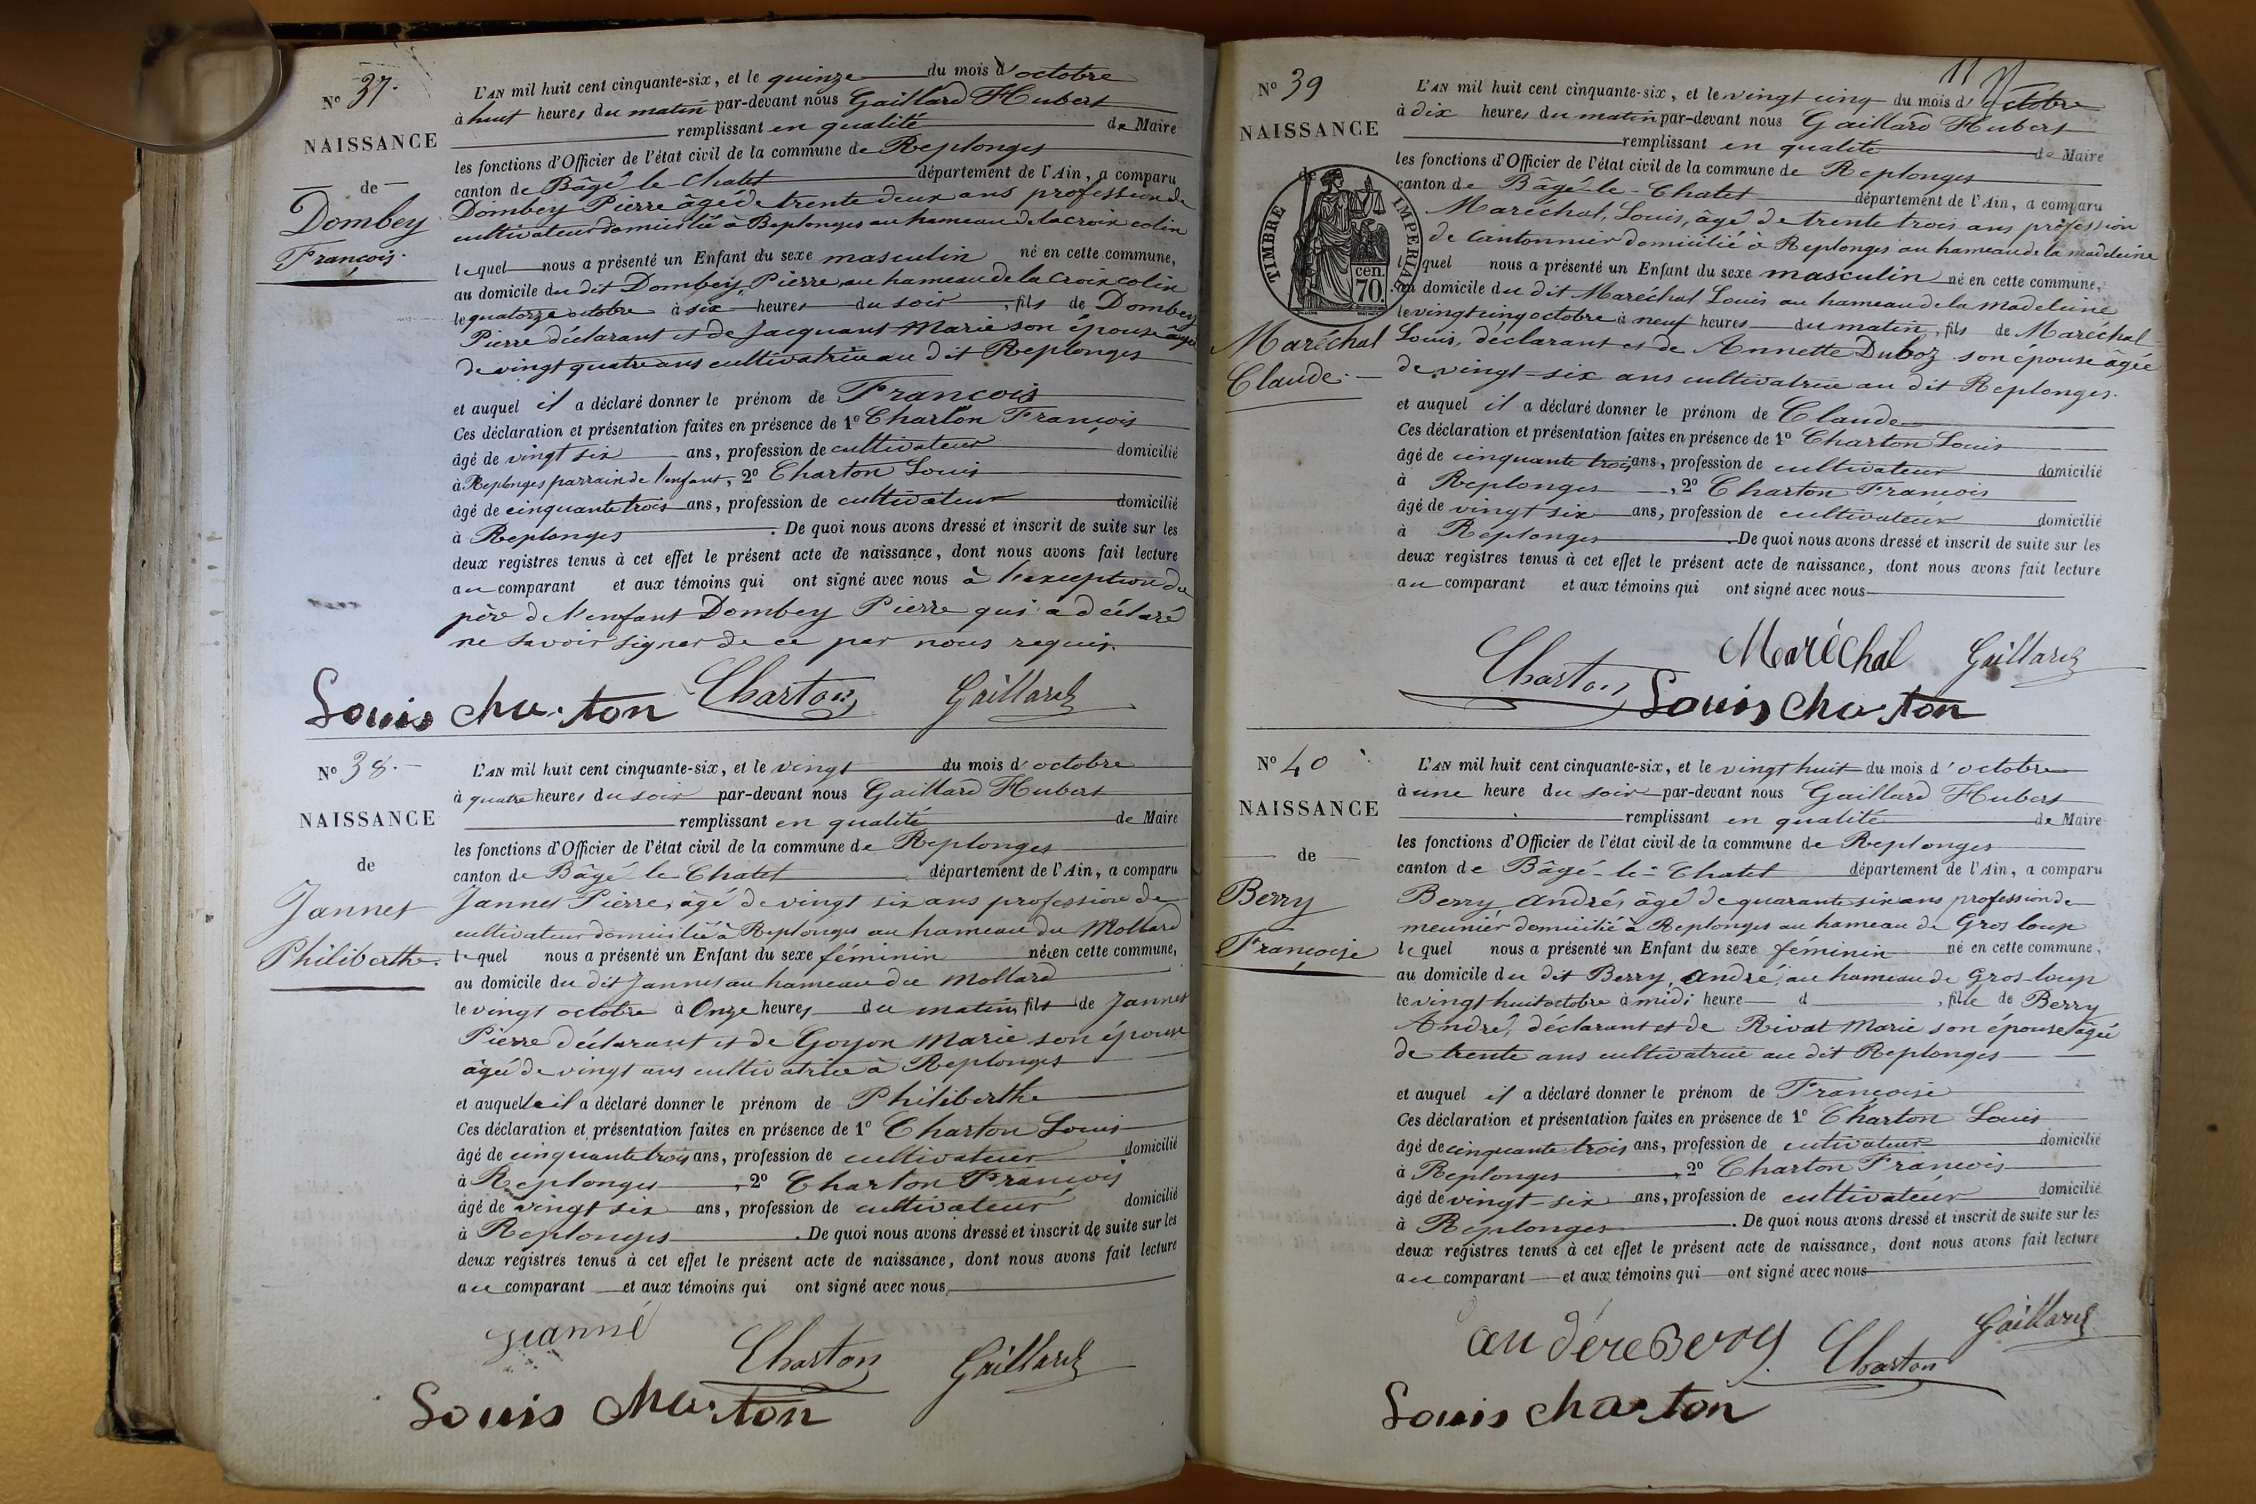 N° 37.
NAISSANCE
de
Dombey
François.
L'AN mil huit cent cinquante-six, et le quinze du mois d'octobre
à huit heures du matin par-devant nous Gaillard Hubert
remplissant en qualité de Maire
les fonctions d'Officier de l'état civil de la commune de Replonges
canton de Bâgé le Chatel département de l'Ain, a comparu
Dombey Pierre âgé de trente deux ans profession de
cultivateur domicilié à Replonges au hameau de la croix colin
lequel nous a présenté un Enfant du sexe masculin né en cette commune,
au domicile du dit Dombey Pierre au hameau de la Croix colin
le quatorze octobre à six heures du soir, fils de Dombey
Pierre déclarant et de Jacquant Marie son épouse âgée
de vingt quatre ans cultivatrice au dit Replonges
et auquel il a déclaré donner le prénom de François
Ces déclaration et présentation faites en présence de 1° Charton François
âgé de vingt six ans, profession de cultivateur domicilié
à Replonges parrain de l'enfant, 2° Charton Louis
âgé de cinquante trois ans, profession de cultivateur domicilié
à Replonges. De quoi nous avons dressé et inscrit de suite sur les
deux registres tenus à cet effet le présent acte de naissance, dont nous avons fait lecture
au comparant et aux témoins qui ont signé avec nous à l'exception du
père de l'enfant Dombey Pierre qui a déclaré
ne savoir signer de ce par nous requis.
Louis charton Charton Gaillard
N° 38.
NAISSANCE
de
Jannet
Philiberthe.
L'AN mil huit cent cinquante-six, et le vingt du mois d'octobre
à quatre heures du soir par-devant nous Gaillard Hubert
remplissant en qualité de Maire
les fonctions d'Officier de l'état civil de la commune de Replonges
canton de Bâgé le Chatel département de l'Ain, a comparu
Jannet Pierre, âgé de vingt six ans profession de
cultivateur domicilié à Replonges au hameau du Mollard
lequel nous a présenté un Enfant du sexe féminin née en cette commune,
au domicile du dit Jannet au hameau du Mollard
le vingt octobre à Onze heures du matin, fils de Jannet
Pierre déclarant et de Goyon Marie son épouse
âgée de vingt ans cultivatrice à Replonges
et auquelle il a déclaré donner le prénom de Philiberthe
Ces déclaration et présentation faites en présence de 1° Charton Louis
âgé de cinquante trois ans, profession de cultivateur domicilié
à Replonges, 2° Charton François
âgé de vingt six ans, profession de cultivateur domicilié
à Replonges. De quoi nous avons dressé et inscrit de suite sur les
deux registres tenus à cet effet le présent acte de naissance, dont nous avons fait lecture
au comparant et aux témoins qui ont signé avec nous
Charton Gaillard
Louis charton
11
N° 39
NAISSANCE
de
TIMBRE IMPERIAL
cen.
70.
Maréchal
Claude.
L'AN mil huit cent cinquante-six, et le vingt cinq du mois d'octobre
à dix heures du matin par-devant nous Gaillard Hubert
remplissant en qualité de Maire
les fonctions d'Officier de l'état civil de la commune de Replonges
canton de Bâgé-le-Chatel département de l'Ain, a comparu
Maréchal, Louis, âgé de trente trois ans profession
de Cantonnier domicilié à Replonges au hameau de la madeleine
lequel nous a présenté un Enfant du sexe masculin né en cette commune,
au domicile du dit Maréchal Louis au hameau de la Madeleine
le vingt cinq octobre à neuf heures du matin, fils de Maréchal
Louis, déclarant et de Annette Duboz son épouse âgée
de vingt-six ans cultivatrice au dit Replonges.
et auquel il a déclaré donner le prénom de Claude
Ces déclaration et présentation faites en présence de 1° Charton Louis
âgé de cinquante trois ans, profession de cultivateur domicilié
à Replonges, 2° Charton François
âgé de vingt six ans, profession de cultivateur domicilié
à Replonges. De quoi nous avons dressé et inscrit de suite sur les
deux registres tenus à cet effet le présent acte de naissance, dont nous avons fait lecture
au comparant et aux témoins qui ont signé avec nous
Maréchal Gaillard
Charton Louis charton
N° 40
NAISSANCE
de
Berry
Françoise
L'AN mil huit cent cinquante-six, et le vingt huit du mois d'octobre
à une heure du soir par-devant nous Gaillard Hubert
remplissant en qualité de Maire
les fonctions d'Officier de l'état civil de la commune de Replonges
canton de Bâgé-le-Chatel département de l'Ain, a comparu
Berry André, âgé de quarante six ans profession de
meunier domicilié à Replonges au hameau de Gros loup
lequel nous a présenté un Enfant du sexe féminin né en cette commune,
au domicile du dit Berry, André, au hameau de Gros-loup
le vingt huit octobre à midi heure d , fille de Berry
André, déclarant et de Rivat Marie son épouse âgée
de trente ans cultivatrice au dit Replonges
et auquel il a déclaré donner le prénom de Françoise
Ces déclaration et présentation faites en présence de 1° Charton Louis
âgé de cinquante trois ans, profession de cutivateur domicilié
à Replonges, 2° Charton François
âgé de vingt-six ans, profession de cultivateur domicilié
à Replonges. De quoi nous avons dressé et inscrit de suite sur les
deux registres tenus à cet effet le présent acte de naissance, dont nous avons fait lecture
au comparant et aux témoins qui ont signé avec nous
an dére Berry Charton Gaillard
Louis charton